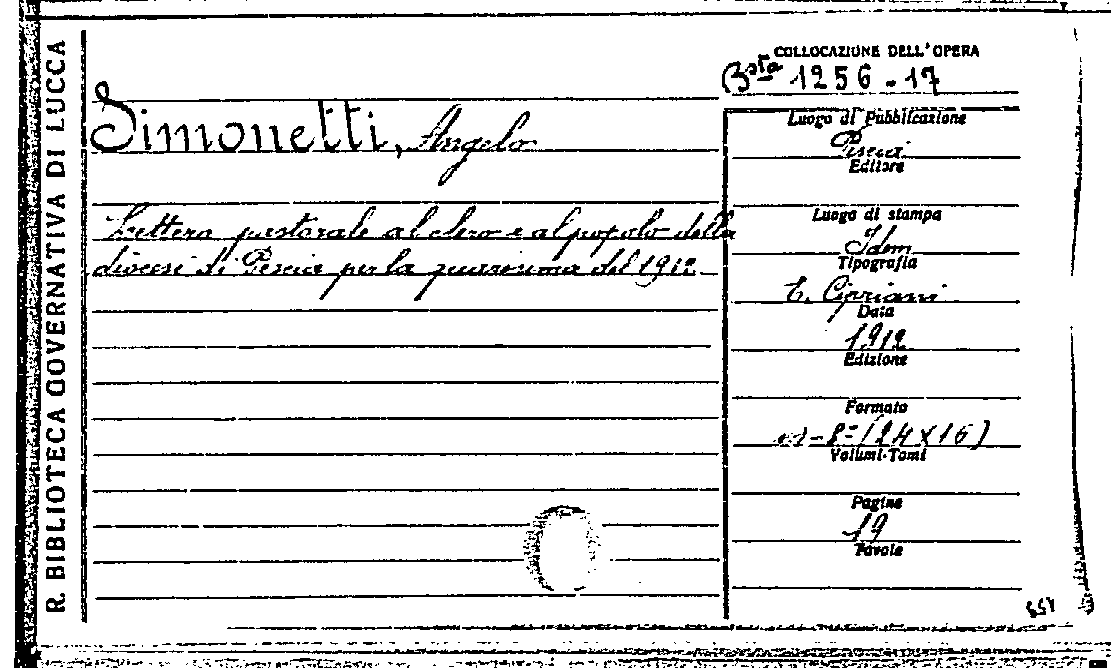 R. BIBLIOTECA GOVERNATIVA DI LUCCA
COLLOCAZIONE DELL'OPERA
Bsta 1256-17
Simonetti, Angelo
Lettera pastorale al clero e al popolo della
diocesi di Pescia per la quaresima del 1912
Luogo di Pubblicazione
Pescia
Editore
Luogo di stampa
Idem
Tipografia
E. Cipriani
Data
1912
Edizione
Formato
in-8º (24x16)
Volumi-Tomi
Pagine
19
Tavole